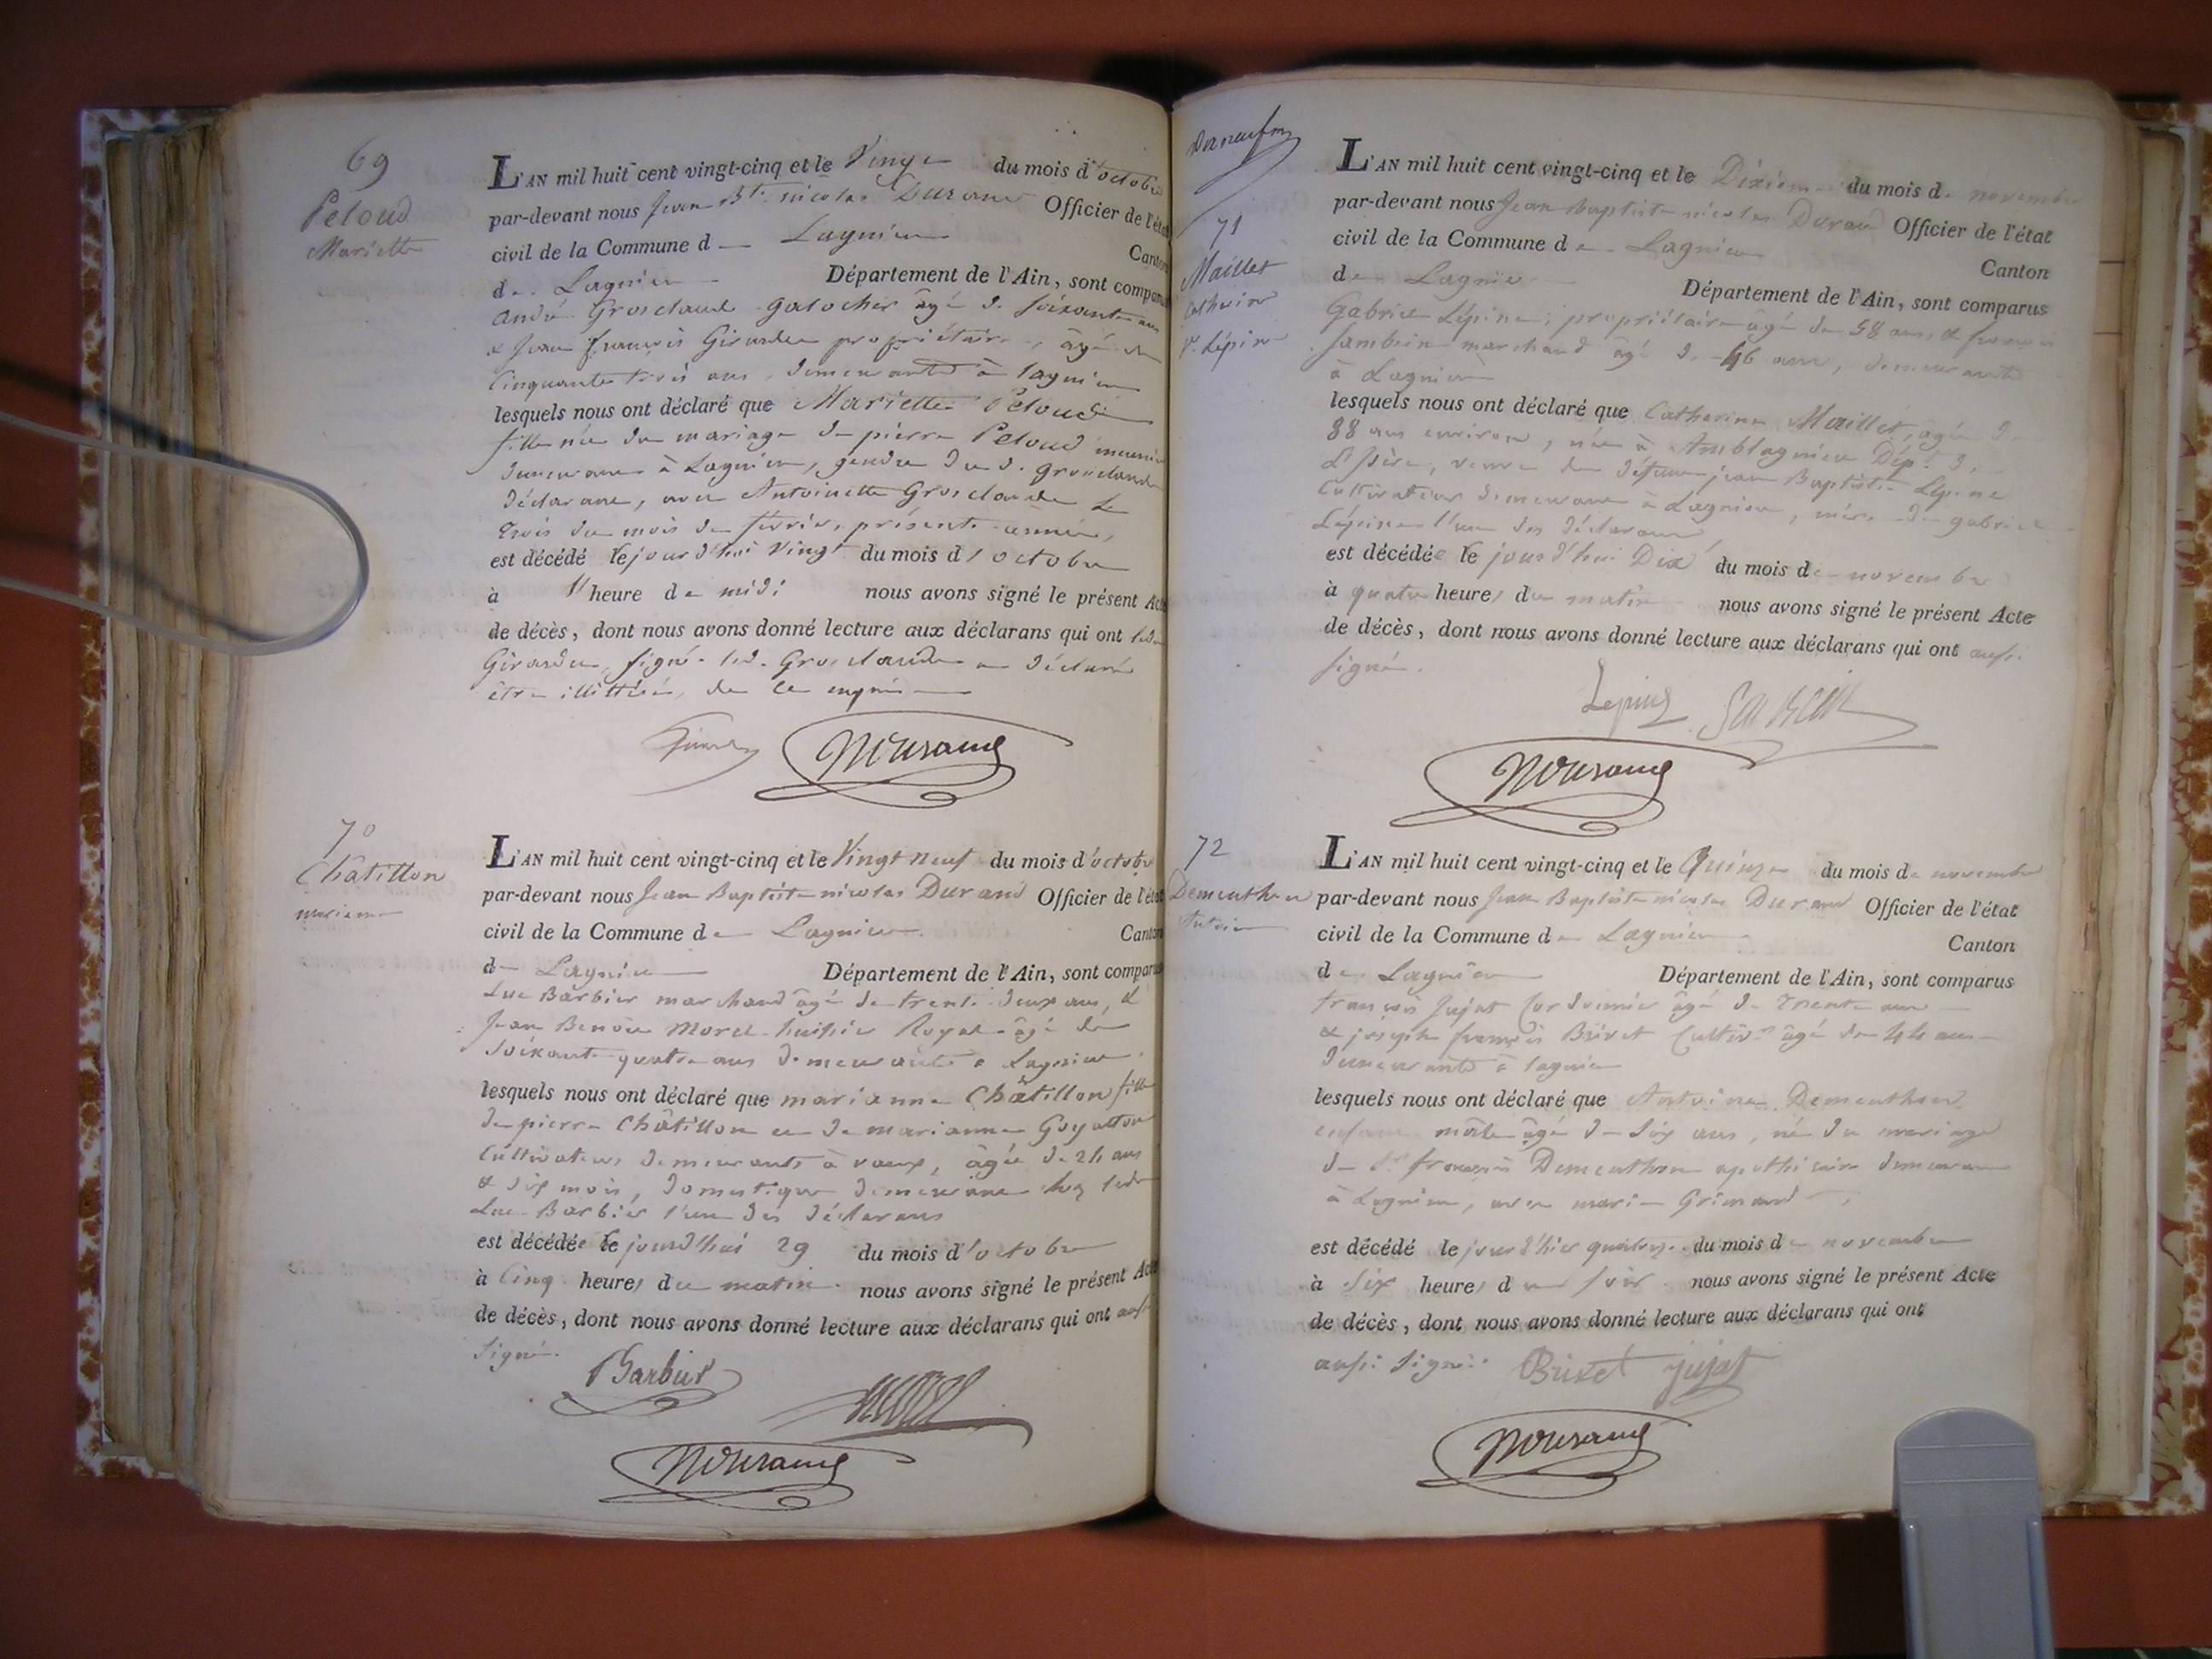 69
Peloud
Mariette
L'AN mil huit cent vingt-cinq et le Vingt du mois d'octobre
par-devant nous Jean Bte. nicolas Durand Officier de l'état
civil de la Commune de Lagnieu Canton
de Lagnieu Département de l'Ain, sont comparus
André Grosclaude galocher âgé de soixante ans
& Jean françois Girardet propriétaire, âgé de
Cinquante trois ans, demeurants à lagnieu
lesquels nous ont déclaré que Mariette Peloud
fille née du mariage de pierre Peloud meunier
demeurant à Lagnieu, gendre du d. Grosclaude
déclarant, avec Antoinette Grosclaude le
trois du mois de février, présente année,
est décédé le jourd'hui Vingt du mois d'octobre
à 1 heure de midi nous avons signé le présent Acte
de décès, dont nous avons donné lecture aux déclarans qui ont led.
Girardet signé. led. Grosclaude a déclaré
être illittéré, de ce enquis
NDurand
70
Châtillon
marianne
L'AN mil huit cent vingt-cinq et le Vingt neuf du mois d'octobre
par-devant nous Jean Baptiste nicolas Durand Officier de l'état
civil de la Commune de Lagnieu Canton
de Lagnieu Département de l'Ain, sont comparus
Luc Barbier marchand âgé de trente deux ans, &
Jean Benoit Morel huissier Royal âgé de
soixante quatre ans demeurants à Lagnieu
lesquels nous ont déclaré que marianne Châtillon fille
de pierre Châtillon et de marianne Guyotton
cultivateurs demeurants à vaux, âgée de 24 ans
& dix mois, domestique demeurant chez led.
Luc Barbier l'un des déclarans
est décédée le jourd'hui 29 du mois d'octobre
à Cinq heures du matin. nous avons signé le présent Acte
de décès, dont nous avons donné lecture aux déclarans qui ont aussi
signé.
Barbier
Morel
NDurand
71
Maillet
Catherine
Ve. Lépine
L'AN mil huit cent vingt-cinq et le Dixième du mois de novembre
par-devant nous Jean Baptiste nicolas Durand Officier de l'état
civil de la Commune de Lagnieu
Canton
de Lagnieu Département de l'Ain, sont comparus
Gabriel Lépine, propriétaire âgé de 58 ans, & françois
Sambein marchand âgé de 46 ans, demeurants
à Lagnieu
lesquels nous ont déclaré que Catherine Maillet, agée de
88 ans environ, née à Amblagnieu Dépt. de
L'Isère, veuve de defunt jean Baptiste Lépine
Cultivateur demeurant à Lagnieu, mère de gabriel
Lépine l'un des déclarans
est décédée le jourd'hui Dix du mois de novembre
à quatre heures du matin nous avons signé le présent Acte
de décès, dont nous avons donné lecture aux déclarans qui ont aussi
signé.
Lepine
NDurand
72
Dementhon
Antoine
L'AN mil huit cent vingt-cinq et le Quinze du mois de novembre
par-devant nous Jean Baptiste nicolas Durand Officier de l'état
civil de la Commune de Lagnieu
Canton
de Lagnieu Département de l'Ain, sont comparus
françois Jujat Cordonnier âgé de trente ans
& joseph françois Brivet Cultivr. âgé de 44 ans
demeurants à lagnieu
lesquels nous ont déclaré que Antoine Dementhon
enfant mâle âgé de six ans, né du mariage
de Sr. françois Dementhon apothicaire demeurant
à Lagnieu, avec marie Grimaud
est décédé le jour d'hier quatorze du mois de novembre
à Six heures du soir nous avons signé le présent Acte
de décès, dont nous avons donné lecture aux déclarans qui ont
aussi signé. Brivet Jujat
NDurand